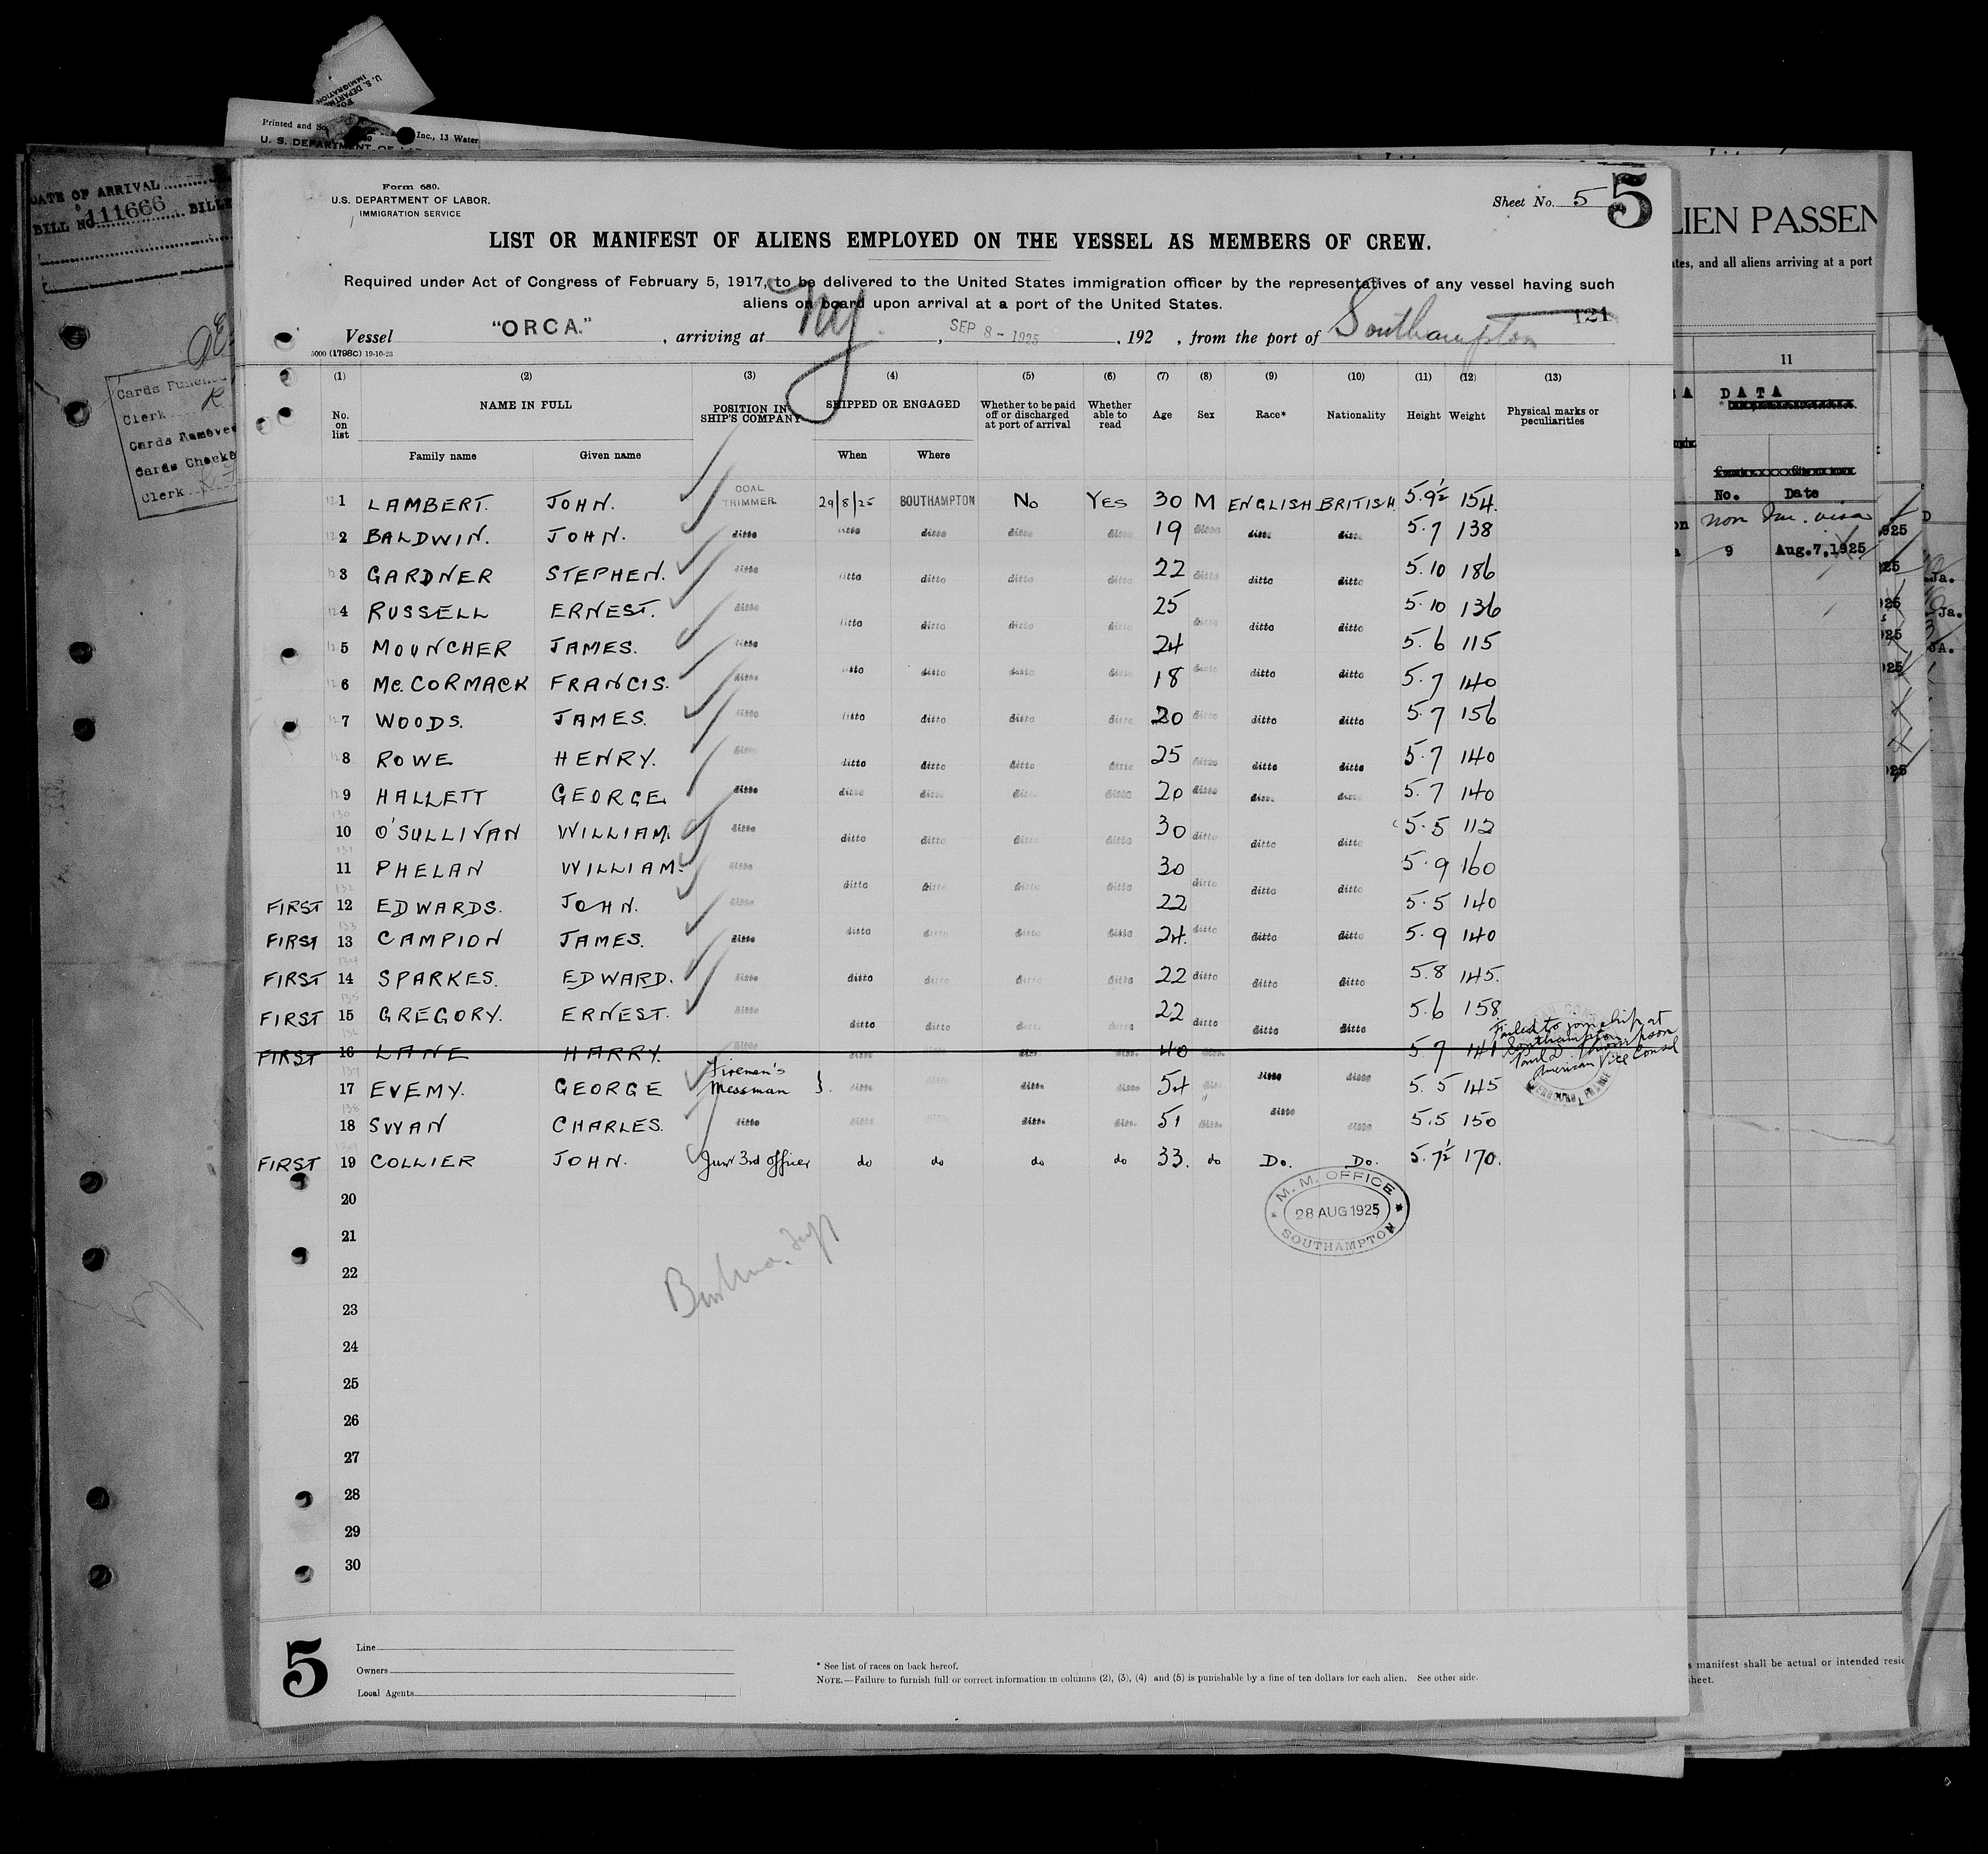 U. S. DEPARTME
IMMIGRATION
Printed and So Inc., 13 Water
U. S. DEPARTMENT OF LA
DATE OF ARRIVAL
BILL NO. 111666 BILLE
Cards Punched
Clerk
Cards Removed
Cards Checke
Clerk
Form 680.
U.S. DEPARTMENT OF LABOR.
IMMIGRATION SERVICE
Sheet No. 5
5
LIST OR MANIFEST OF ALIENS EMPLOYED ON THE VESSEL AS MEMBERS OF CREW.
Required under Act of Congress of February 5, 1917, to be delivered to the United States immigration officer by the representatives of any vessel having such
aliens on board upon arrival at a port of the United States.
121
Vessel "ORCA." , arriving at NY , SEP 8 - 1925 , 192 , from the port of Southampton
5000 (1798C) 19-10-23
(1) (2) (3) (4) (5) (6) (7) (8) (9) (10) (11) (12) (13)
No. on list NAME IN FULL POSITION IN SHIP'S COMPANY SHIPPED OR ENGAGED Whether to be paid off or discharged at port of arrival Whether able to read Age Sex Race* Nationality Height Weight Physical marks or peculiarities
Family name Given name When Where
1 LAMBERT. JOHN. COAL TRIMMER 29/8/25 SOUTHAMPTON No YES 30 M ENGLISH BRITISH. 5.9½ 154.
2 BALDWIN. JOHN. ditto ditto ditto ditto ditto 19 ditto ditto ditto 5.7 138
3 GARDNER STEPHEN. ditto ditto ditto ditto ditto 22 ditto ditto ditto 5.10 186
4 RUSSELL ERNEST. ditto ditto ditto ditto ditto 25 ditto ditto ditto 5.10 136
5 MOUNCHER JAMES. ditto 24 5.6 115
6 Mc.CORMACK FRANCIS. ditto ditto ditto ditto ditto 18 ditto ditto ditto 5.7 140
7 WOODS. JAMES. ditto ditto ditto ditto ditto 20 ditto ditto ditto 5.7 156
8 ROWE HENRY. ditto ditto ditto ditto ditto 25 ditto ditto ditto 5.7 140
9 HALLETT GEORGE. ditto ditto ditto ditto ditto 20 ditto ditto ditto 5.7 140
10 O'SULLIVAN WILLIAM. ditto ditto ditto ditto ditto 30 ditto ditto ditto 5.5 112
11 PHELAN WILLIAM. ditto ditto ditto ditto ditto 30 ditto ditto ditto 5.9 160
FIRST 12 EDWARDS. JOHN. ditto 22 5.5 140
FIRST 13 CAMPION JAMES. ditto ditto ditto ditto ditto 24. ditto ditto ditto 5.9 140
FIRST 14 SPARKES. EDWARD. ditto ditto ditto ditto ditto 22 ditto ditto ditto 5.8 145.
FIRST 15 GREGORY. ERNEST. ditto ditto ditto ditto ditto 22 ditto ditto ditto 5.6 158
FIRST 16 LANE HARRY. ditto ditto ditto ditto ditto 40 ditto 5.7 141
Failed to join ship at
Southampton
Paul D. Thompson
American Vice Consul
17 EVEMY. GEORGE Firemen's Messman }. ditto ditto ditto 54 ditto ditto 5.5 145
18 SWAN CHARLES. ditto ditto ditto ditto 51 ditto ditto ditto 5.5 150
FIRST 19 COLLIER JOHN. Junr 3rd Officer do do do do 33. do Do. Do. 5.7½ 170.
M. M. OFFICE
28 AUG 1925
SOUTHAMPTON
20
21
22
23
24
25
26
27
28
29
30
5
Line
Owners
Local Agents
* See list of races on back hereof.
NOTE.—Failure to furnish full or correct information in columns (2), (3), (4) and (5) is punishable by a fine of ten dollars for each alien. See other side.
LIEN PASSEN
ates, and all aliens arriving at a port
11
A DATA
No. Date
non Imm. visa
9 Aug.7,1925
925
25
Ja.
Ja.
JA.
s manifest shall be actual or intended resid
sheet.